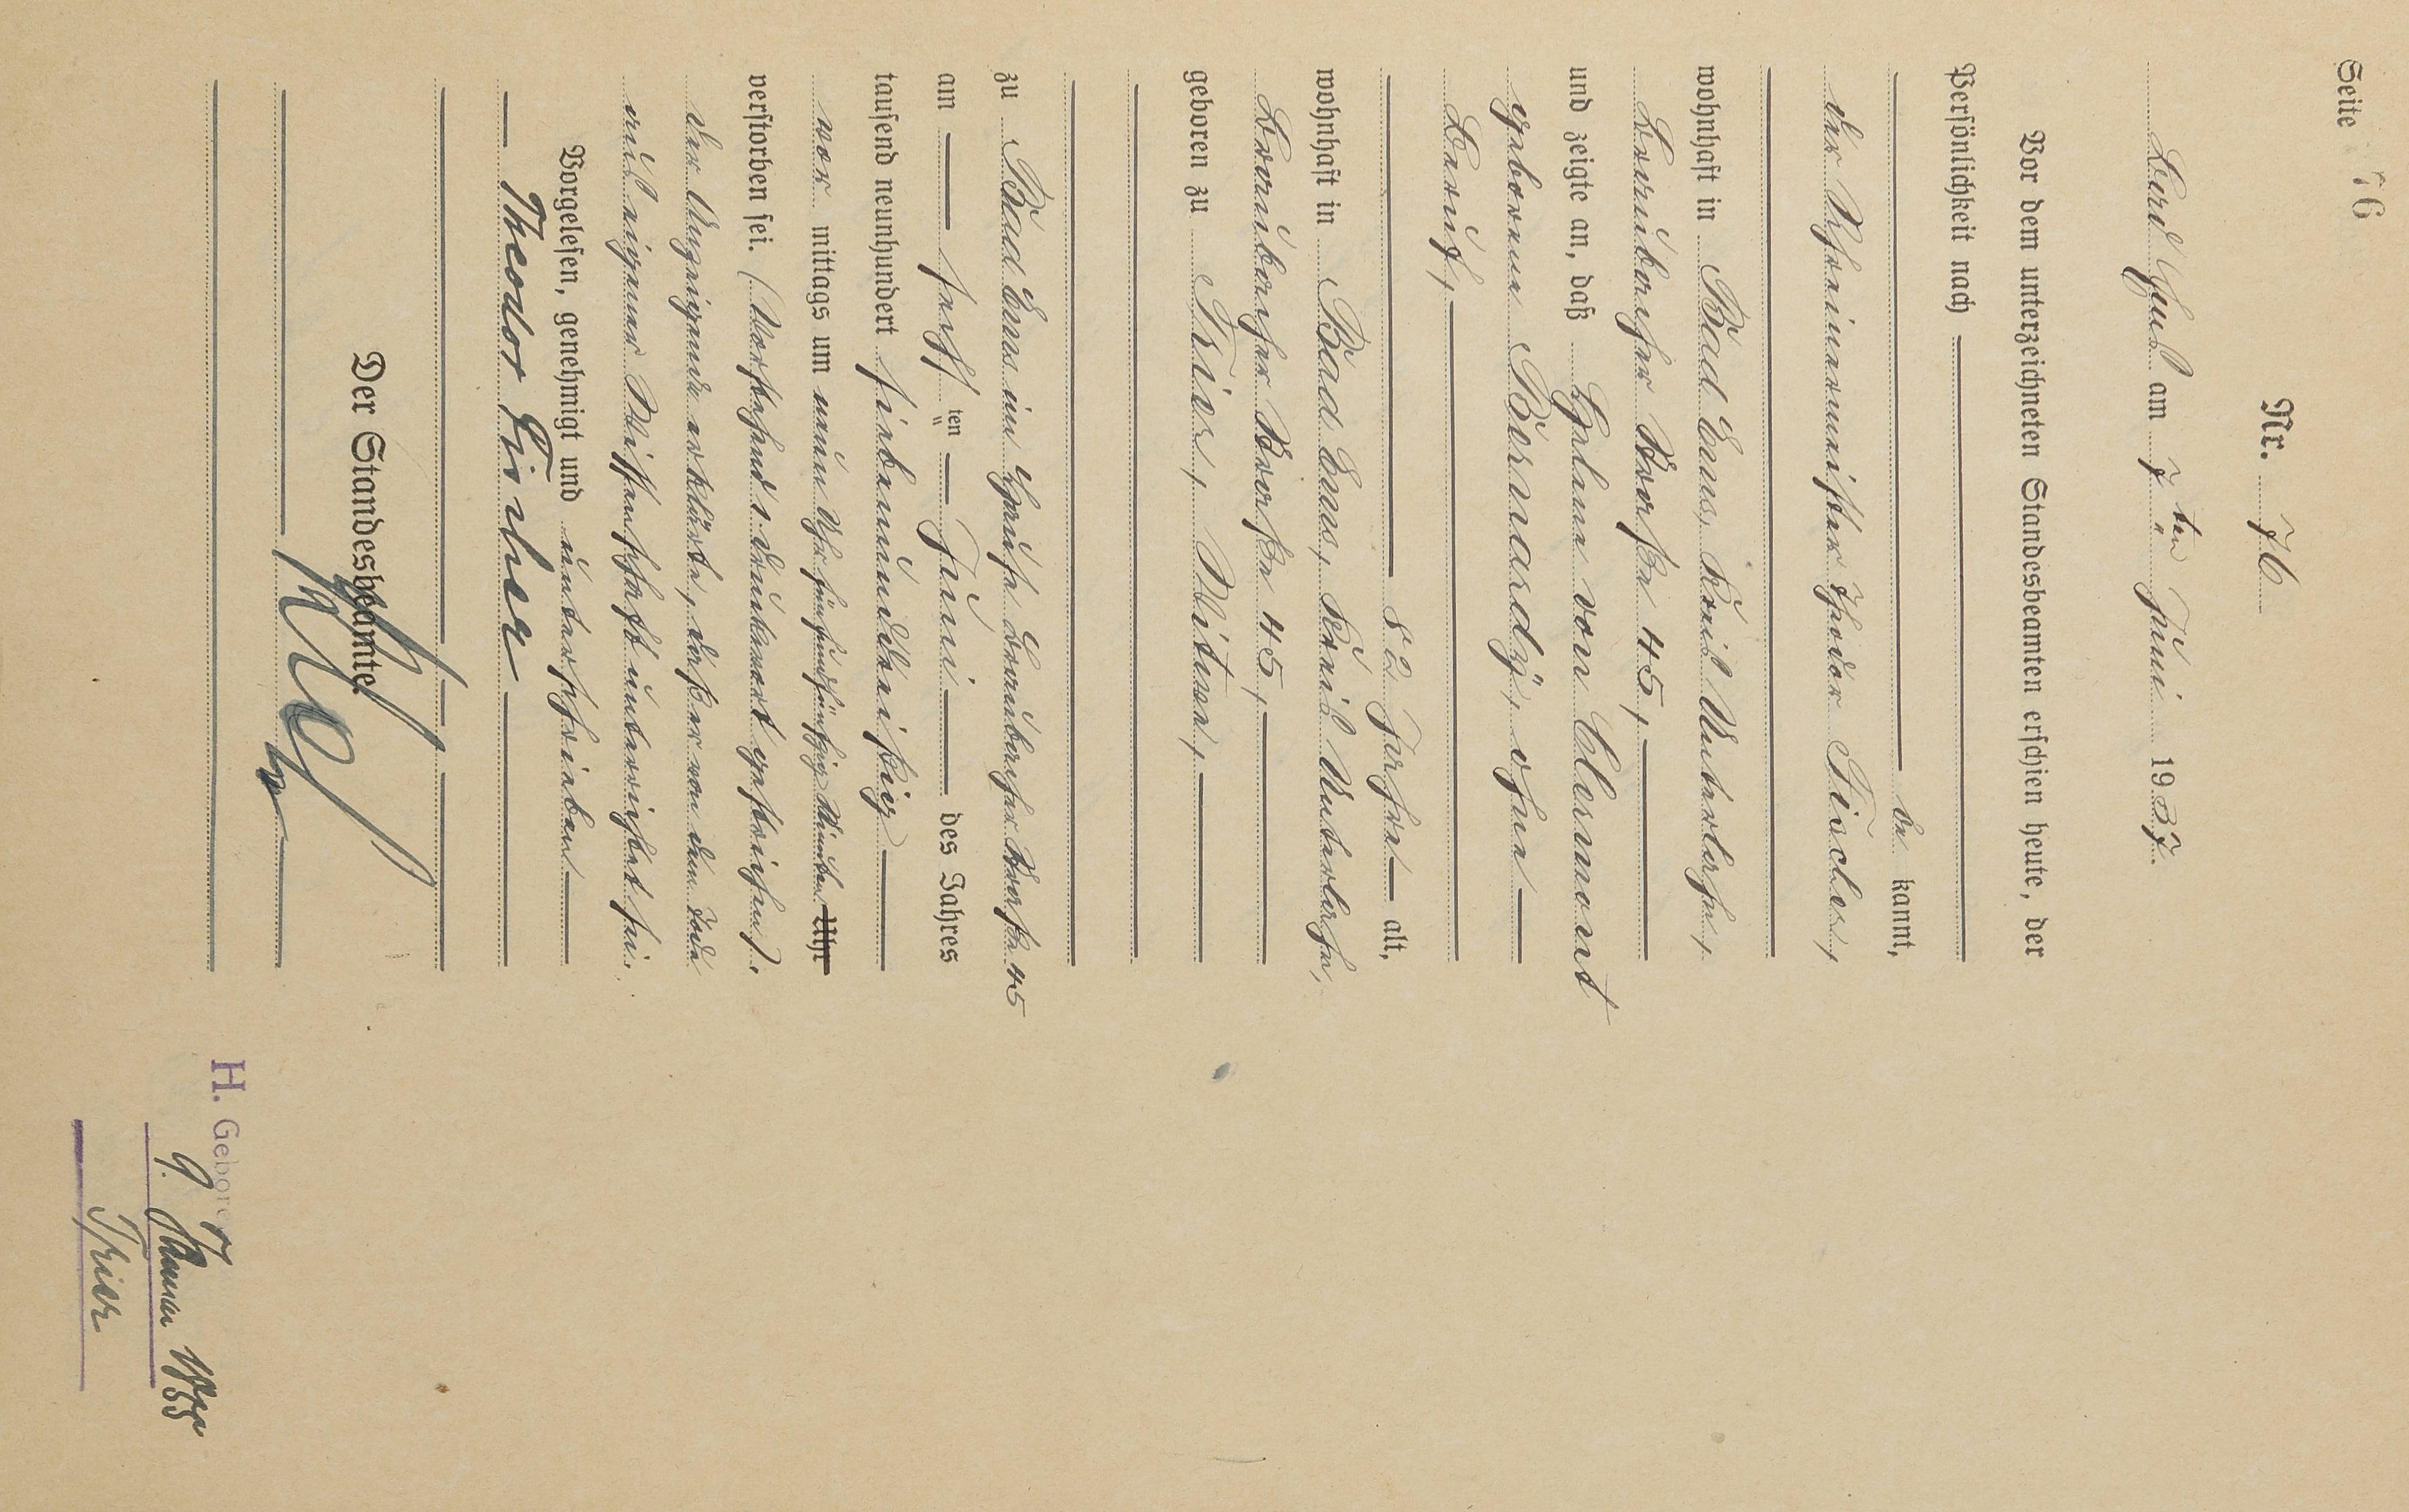 Seite 76
Nr. 76
Bad Ems am 7ten Juni 1937.
Vor dem unterzeichneten Standesbeamten erschien heute, der
Persönlichkeit nach
be kannt,
der Schreinermeister Theodor Fischer,
wohnhaft in Bad Ems,
Braubacher Straße 45,
und zeigte an, daß Helene von Clermont
geborene Bernardy, ohne
Beruf,
82 Jahre alt,
wohnhaft in Bad Ems,
Braubacher Straße 45,
geboren zu Trier, Witwe,
zu Bad Ems im Hause Braubacher Straße 45
am sechsten Juni des Jahres
tausend neunhundert siebenunddreißig
vor mittags um neun Uhr fünfundfünfzig Minuten Uhr
verstorben sei. (Vorstehend 1 Druckwort gestrichen).
Der Anzeigende erklärte, daß er von dem Tode
aus eigener Wissenschaft unterrichtet sei.
Vorgelesen, genehmigt und unterschrieben
Theodor Fischer
Der Standesbeamte
H. Geboren
Trier